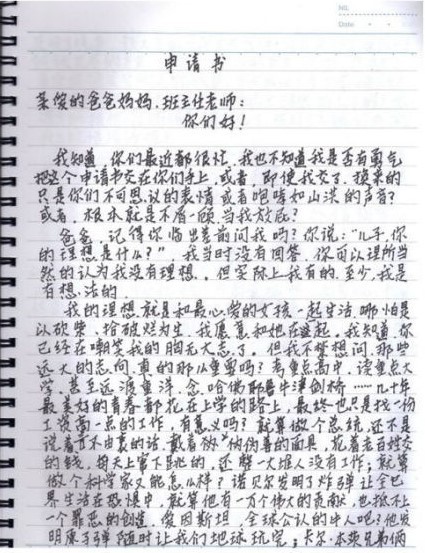 NO.
Date
申请书
亲爱的爸爸妈妈、班主任老师：
你们好！
我知道，你们最近都很忙，我也不知道我是否有勇气
把这个申请书交在你们手上，或者，即使我交了，换来的
只是你们不可思议的表情或者咆哮如山洪的声音？
或者，根本就是不屑一顾，当我放屁？
爸爸，记得你临出差前问我吗？你说：“儿子，你
的理想是什么？”，我当时没有回答，你可以理所当
然的认为我没有理想。但实际上我有的，至少，我是
有想法的。
我的理想就是和最心爱的女孩一起生活，哪怕是
以砍柴、拾破烂为生，我愿意和她在一起。我知道，你
已经在嘲笑我的胸无大志了。但我不禁想问，那些
远大的志向，真的那么重要吗？考重点高中，读重点大
学，甚至远渡重洋，念哈佛牛津剑桥……几十年
最美好的青春都花在上学的路上，最终也只是找一份
工资高一点的工作，有意义吗？就算做个总统，还不是
说着言不由衷的话，戴着伪善的面具，花着老百姓交
的钱，每天上窜下跳的，还整一大堆人没有工作；就算
做个科学家又能怎么样？诺贝尔发明了炸弹让全世
界生活在恐惧中，就算他有一万个伟大的贡献，也抵不上
一个罪恶的创造。爱因斯坦，全球公认的牛人吧？他发
明原子弹随时让我们地球玩完；卡尔·本茨兄弟俩